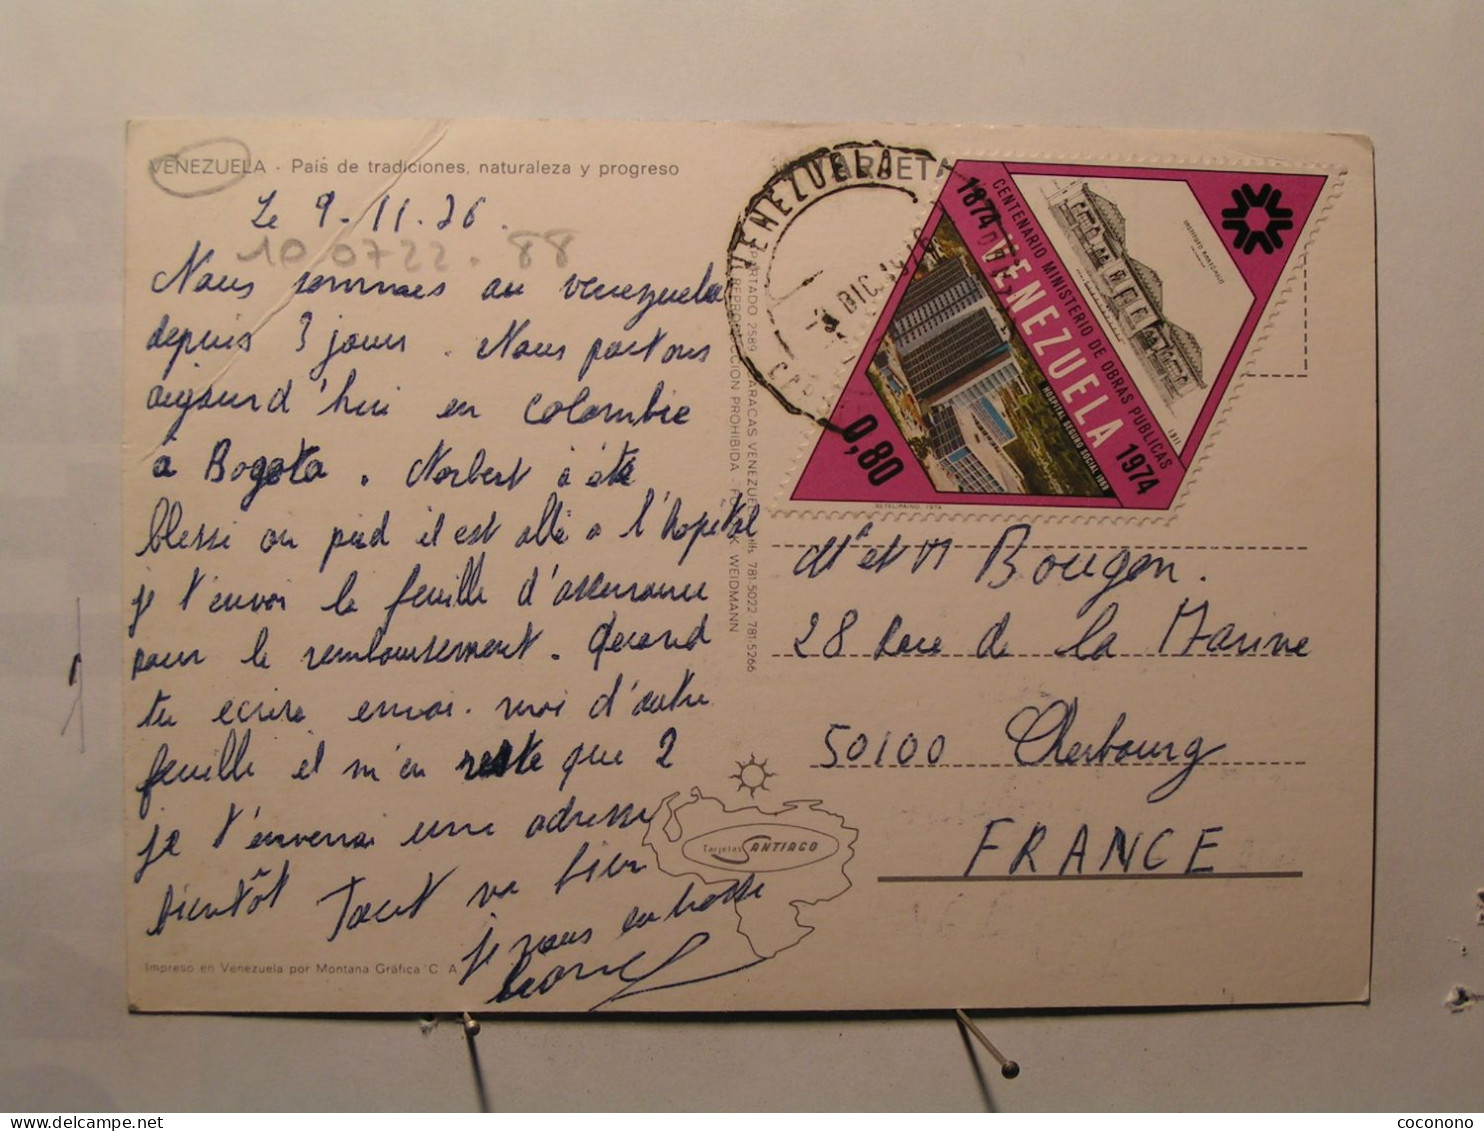 VENEZUELA - País de tradiciones, naturaleza y progreso
Le 9-11.76.
10 0722.88
Nous sommes au venezuela
depuis 3 jours. Nous partons
aujourd'hui en Colombie
a Bogota. Norbert à été
blessé au pied il est allé a l'hopital
je t'envoi la feuille d'assurance
pour le remboursement. Quand
tu ecrira envoi-moi d'autre
feuille il m'en reste que 2
je t'enverrai une adresse
bientôt Tout va bien
je vous embrasse
Impreso en Venezuela por Montana Gráfica C A
APARTADO 2589 CARACAS VENEZUELA 781-5022 781-5266
REPRODUCCION PROHIBIDA - WEIDMANN
Tarjetas SANTIAGO
TARJETA
VENEZUELA
DIC 1976
1874 VENEZUELA 1974
CENTENARIO MINISTERIO DE OBRAS PUBLICAS
INSTITUTO ANATOMICO
1911
HOSPITAL SEGURO SOCIAL 1969
0,80
Me et M Bougon.
28 Rue de la Marine
50100 Cherbourg
FRANCE
coconono